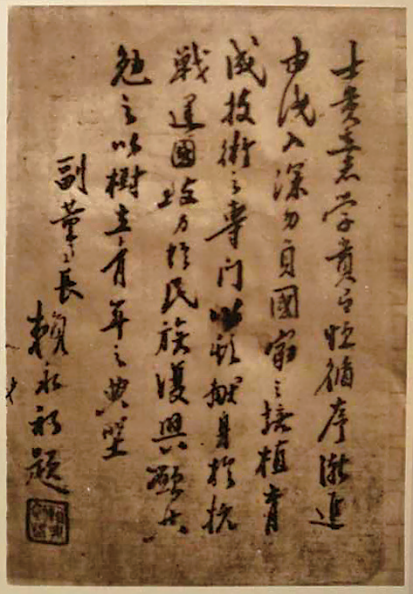 士貴立志学貴有恒循序漸進
由浅入深勿負國家之培植育
成技術之專門以期献身於抗
戦建國致力於民族復興願共
勉之以樹立青年之典型
副董事長
賴永初題